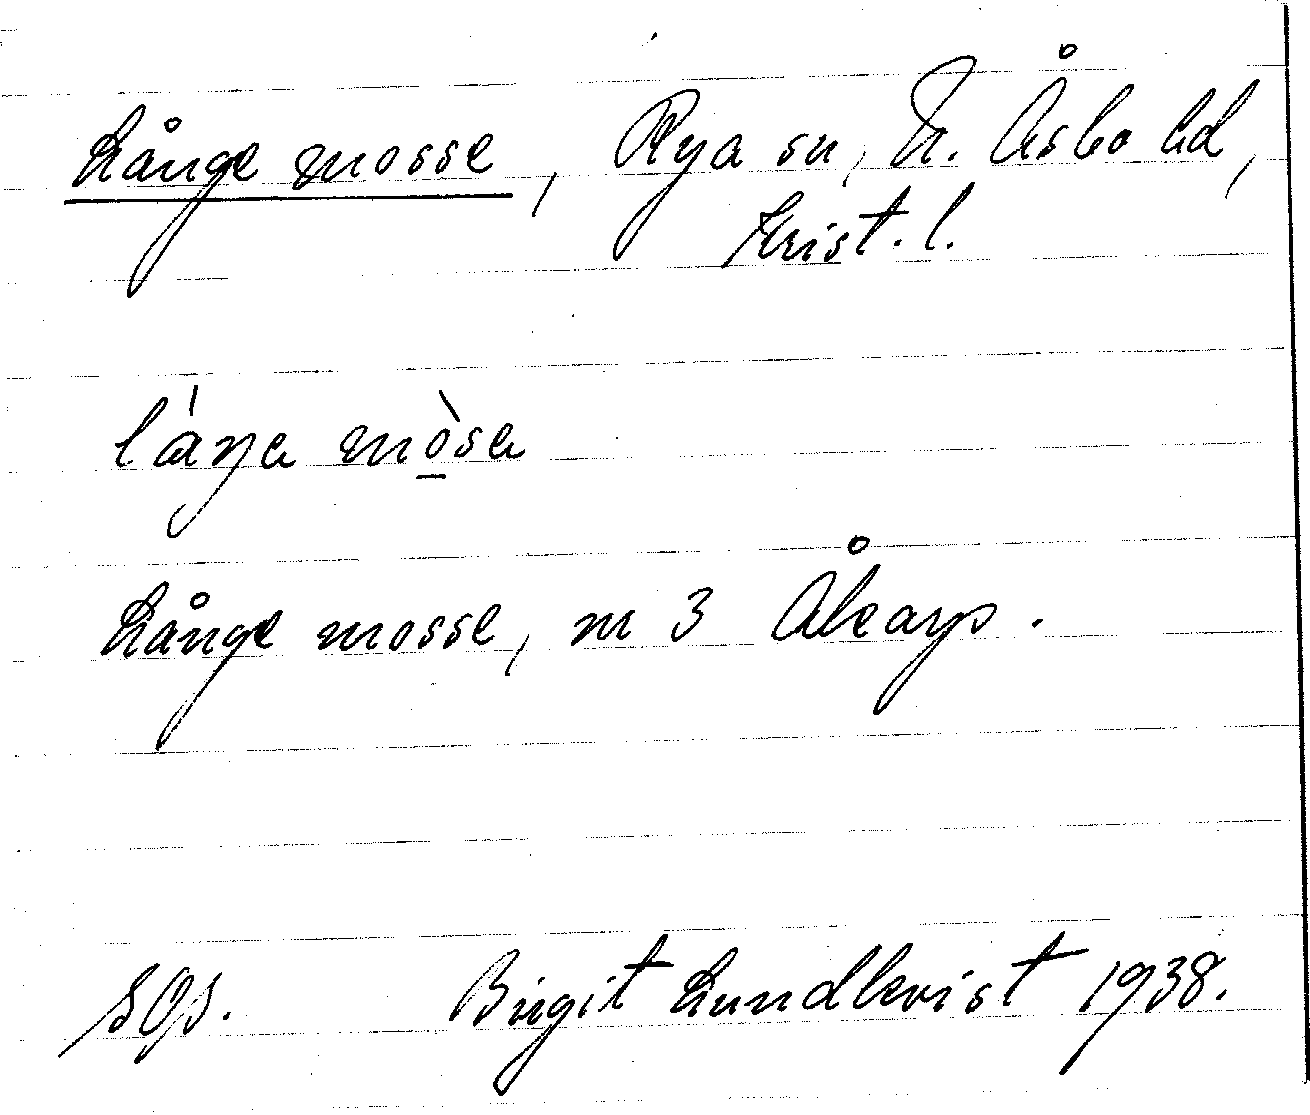 Långe mosse, Rya sn, N. Åsbo hd,
Krist. l.
låŋa mòsa
Långe mosse, m 3 Åkarp.
Birgit Lundkvist 1938.